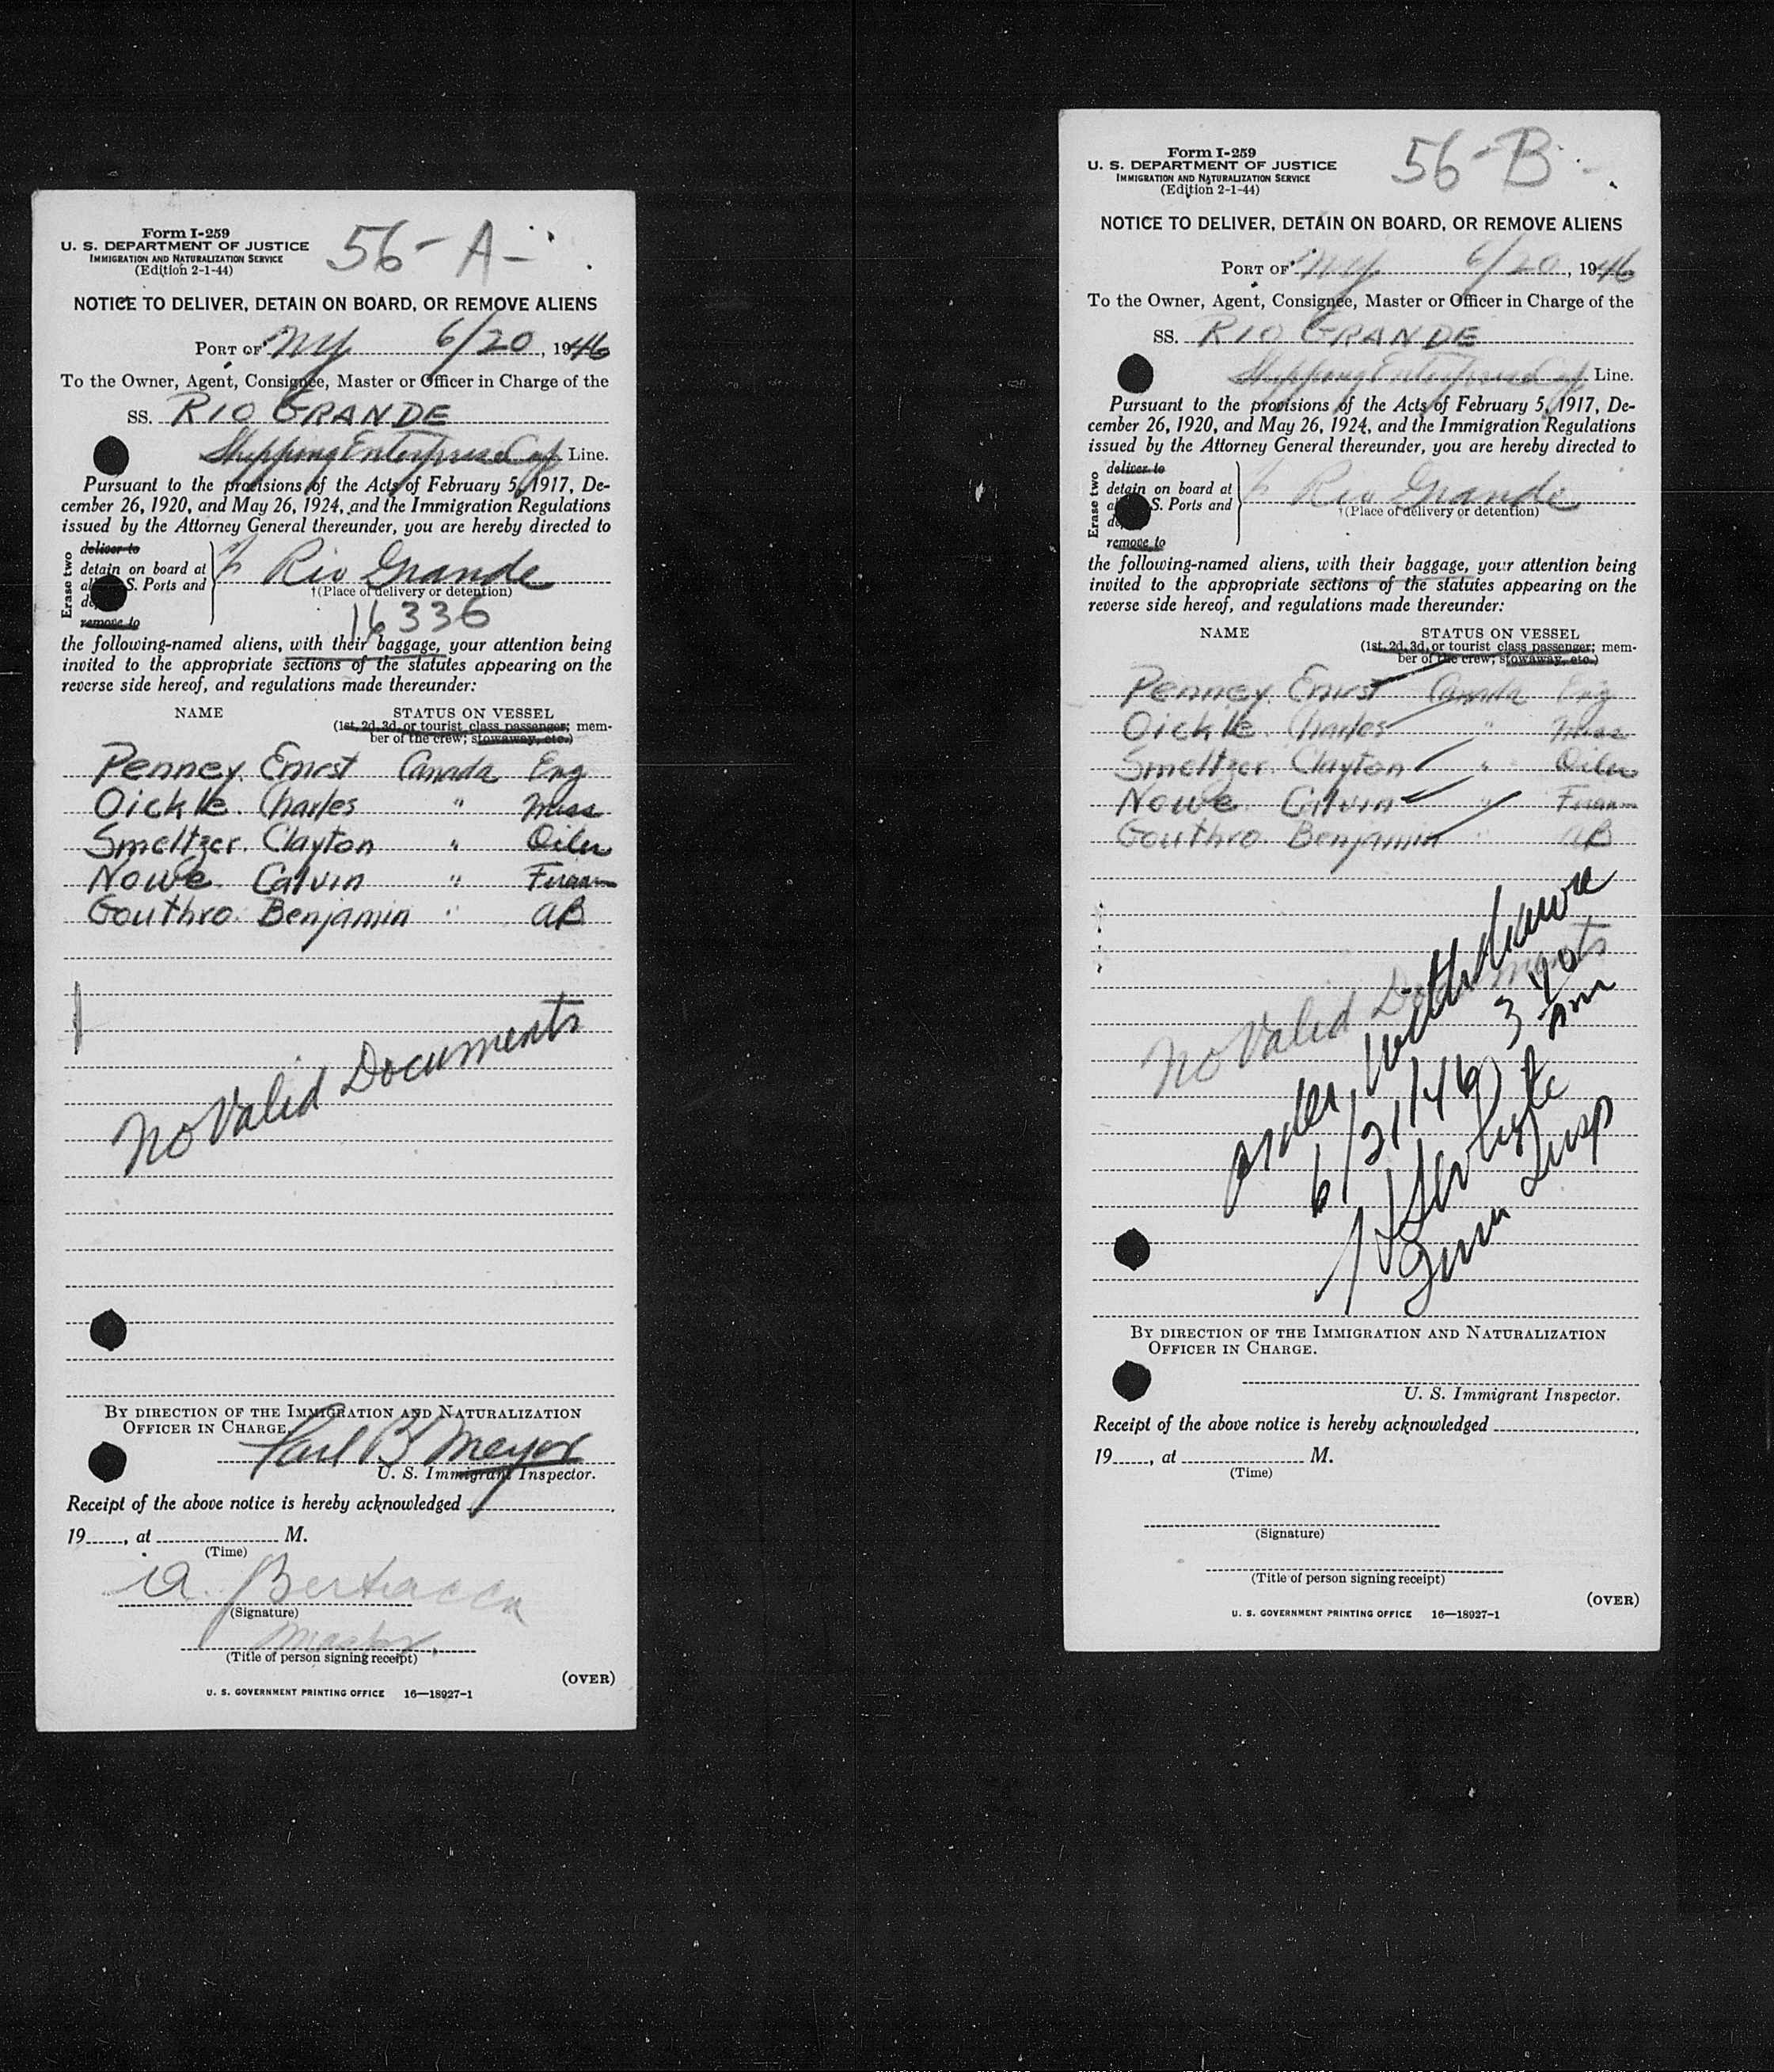 56-A-
Form I-259
U. S. DEPARTMENT OF JUSTICE
IMMIGRATION AND NATURALIZATION SERVICE
(Edition 2-1-44)
NOTICE TO DELIVER, DETAIN ON BOARD, OR REMOVE ALIENS
PORT OF NY 6/20, 1946
To the Owner, Agent, Consignee, Master or Officer in Charge of the
SS. RIO GRANDE
Shipping Enterprises Cp Line.
Pursuant to the provisions of the Acts of February 5, 1917, De-
cember 26, 1920, and May 26, 1924, and the Immigration Regulations
issued by the Attorney General thereunder, you are hereby directed to
Erase two
deliver to
detain on board at
S. Ports and
remove to
Rio Grande
†(Place of delivery or detention)
16336
the following-named aliens, with their baggage, your attention being
invited to the appropriate sections of the statutes appearing on the
reverse side hereof, and regulations made thereunder:
NAME STATUS ON VESSEL
(1st, 2d, 3d, or tourist class passenger; mem-
ber of the crew; stowaway, etc.)
Penney. Ernst Canada Eng
Oickle. Charles " Mess
Smeltzer. Clayton " Oiler
Nowe. Calvin " Firem
Gouthro. Benjamin " AB
No Valid Documents
BY DIRECTION OF THE IMMIGRATION AND NATURALIZATION
OFFICER IN CHARGE.
B Meyer
U. S. Immigrant Inspector.
Receipt of the above notice is hereby acknowledged
19, at M.
(Time)
(Signature)
Master
(Title of person signing receipt)
(OVER)
U. S. GOVERNMENT PRINTING OFFICE 16—18927-1
56-B-
Form I-259
U. S. DEPARTMENT OF JUSTICE
IMMIGRATION AND NATURALIZATION SERVICE
(Edition 2-1-44)
NOTICE TO DELIVER, DETAIN ON BOARD, OR REMOVE ALIENS
PORT OF NY 6/20, 1946
To the Owner, Agent, Consignee, Master or Officer in Charge of the
SS. RIO GRANDE
Shipping Enterprises Cp Line.
Pursuant to the provisions of the Acts of February 5, 1917, De-
cember 26, 1920, and May 26, 1924, and the Immigration Regulations
issued by the Attorney General thereunder, you are hereby directed to
Erase two
deliver to
detain on board at
S. Ports and
remove to
Rio Grande
†(Place of delivery or detention)
the following-named aliens, with their baggage, your attention being
invited to the appropriate sections of the statutes appearing on the
reverse side hereof, and regulations made thereunder:
NAME STATUS ON VESSEL
(1st, 2d, 3d, or tourist class passenger; mem-
ber of the crew; stowaway, etc.)
Penney. Ernst Canada Eng
Oickle. Charles " Mess
Smeltzer. Clayton " Oiler
Nowe. Calvin " Firem
Gouthro. Benjamin " AB
No Valid Documents
order withdrawn
6/21/46 3 40 pm
Imm Insp
BY DIRECTION OF THE IMMIGRATION AND NATURALIZATION
OFFICER IN CHARGE.
U. S. Immigrant Inspector.
Receipt of the above notice is hereby acknowledged
19, at M.
(Time)
(Signature)
(Title of person signing receipt)
(OVER)
U. S. GOVERNMENT PRINTING OFFICE 16—18927-1